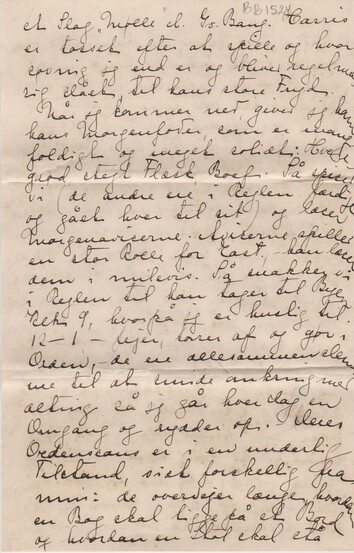 BB1524
et Slag "Mølle" el. Gs. Bang. Carris
er tosset efter at spille og hvor
jeg end er og bliver regelmæs
sig slået, til hans store Fryd.
Når jeg kommer ned giver jeg ham
hans Morgenfoder, som er mang
foldigt og meget solidt: Hvede
grød stegt Flæsk, Boef. Så spiser
vi (de andre ere i Reglen færdige
og gået hver til sit) og læser
Morgenaviserne. Aviserne spiller
en stor Rolle for East, han læser
dem i milevis. Så snakker vi
i Reglen til han tager til Byen
Kl. 9, hvorpå jeg er huslig til
12-1 - fejer, tørrer af og gør i
Orden, - de ere allesammen slemme
til at smide omkring med
alting så jeg går hver dag en
Omgang og rydder op. Deres
Ordenssans er i en underlig
Tilstand, sist forskellig fra
min: de overvejer længe, hvordan
en Bog skal ligge på et Bord
og hvordan en Stol skal stå